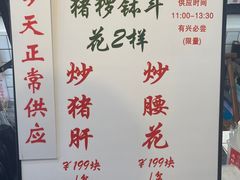 今天正常供应
猪秽钵斗
花2样
供应时间
11:00-13:30
有兴必尝
(限量)
炒猪肝
¥199块
炒腰花
¥199块